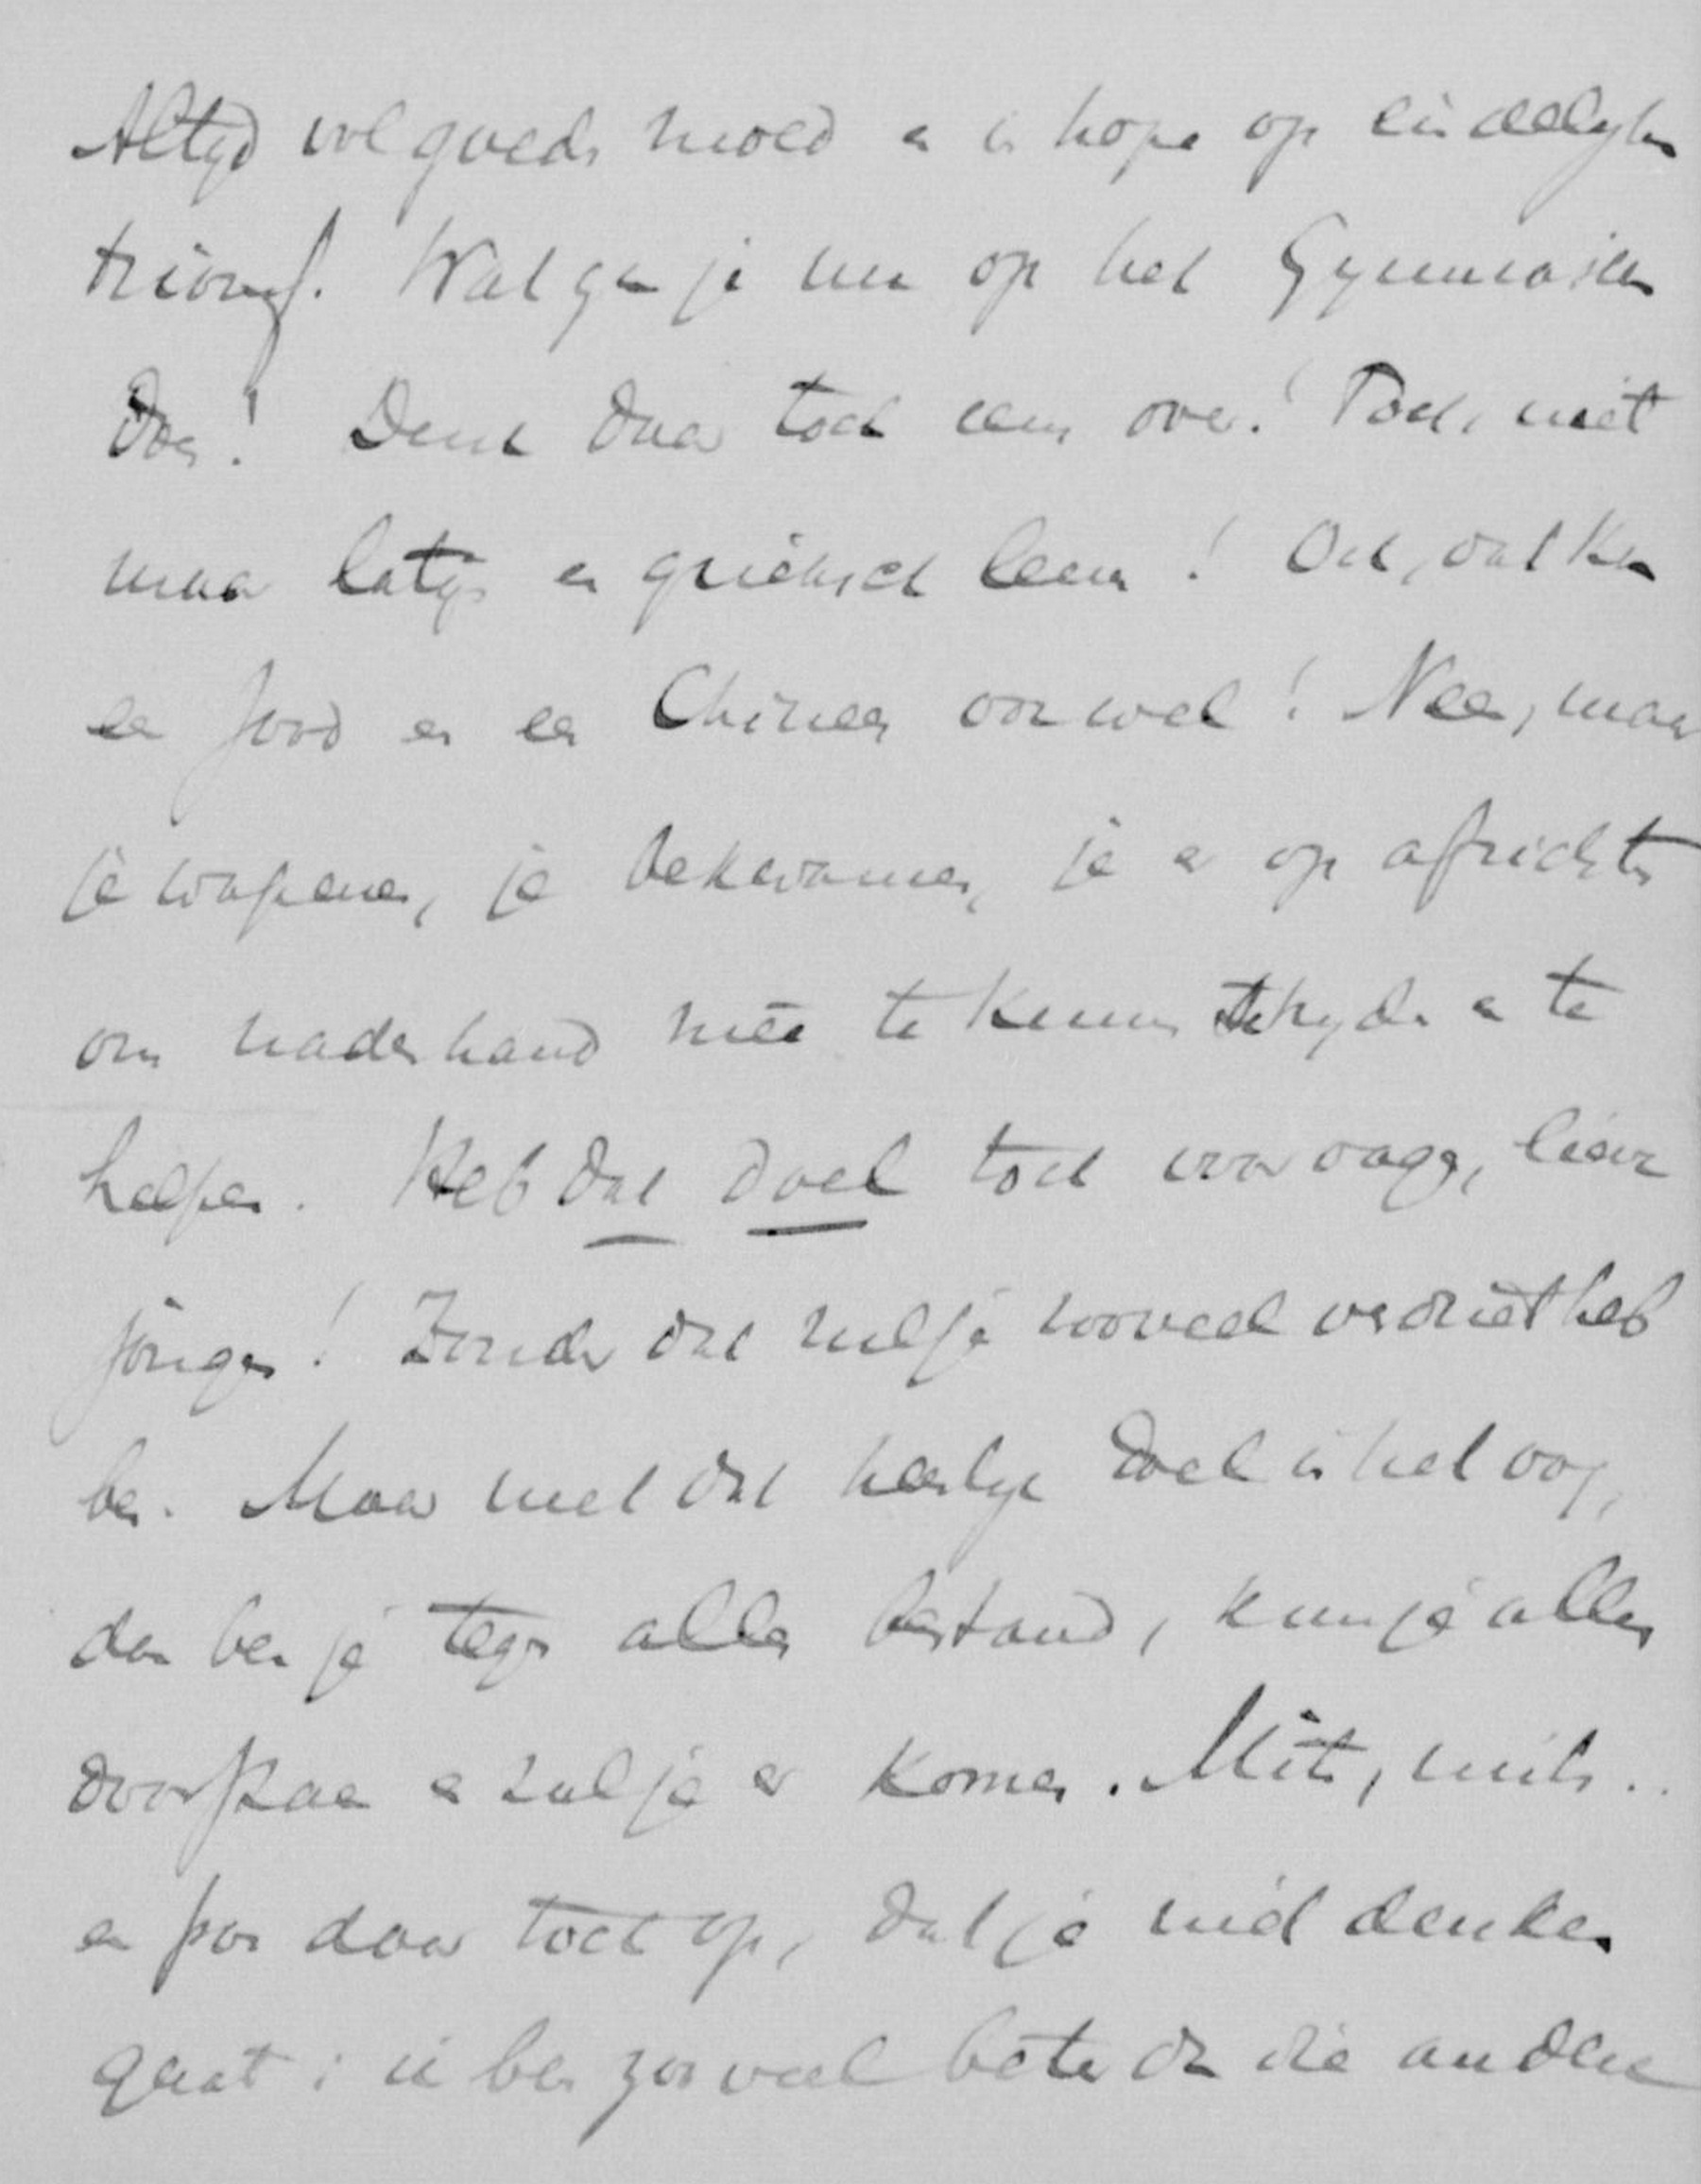 Altyd vol goeden moed en in hope op eindelyken
triomf. Wat ga je nu op het Gymnasium
doen! Denk daar toch eens over! Toch niet
maar latyn en grieksch leeren! Och, dat kan
een Jood en een Chinees ook wel! Neen, maar
je wapenen, je bekwamen, je er op africhten
om naderhand mee te kunnen stryden en te
helpen. Heb dat doel toch voor oogen, lieve
jongen! Zonder dat zul je zooveel verdriet heb
ben. Maar met dat heerlyk doel in het oog,
dan ben je tegen alles bestand, kun je alles
doorstaan en zul je er komen. Mits, mits..
en pas daar toch op, dat je niet denken
gaat: ik ben zooveel beter dan die andere